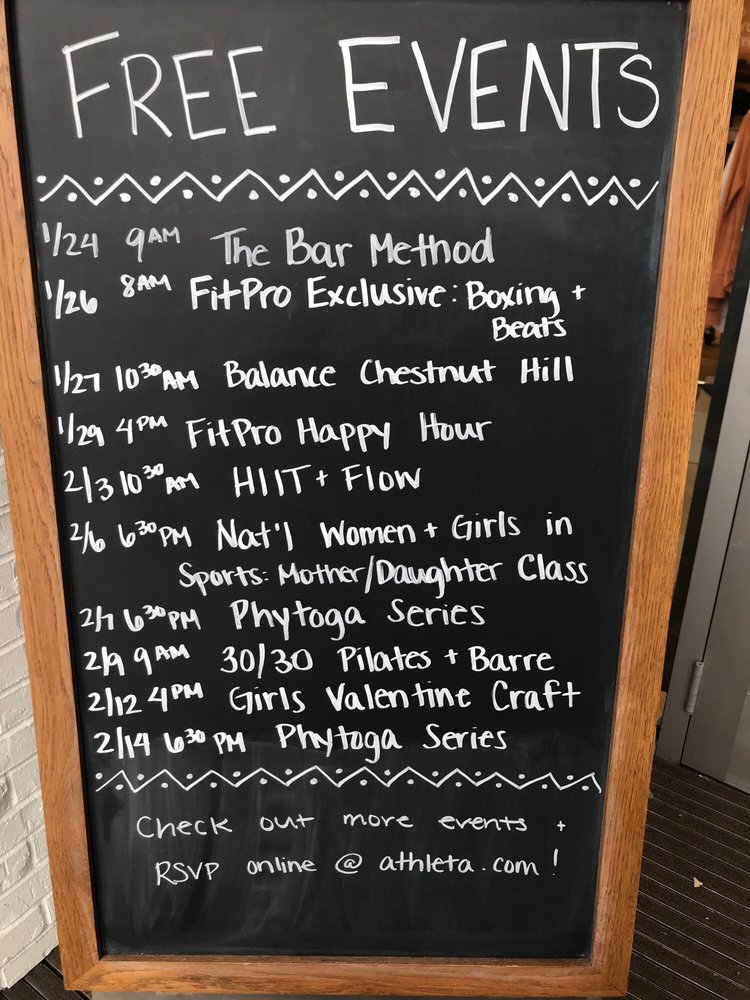 FREE EVENTS
1/24 9AM The Bar Method
1/26 8AM FitPro Exclusive: Boxing +
Beats
1/27 10 30 AM Balance Chestnut Hill
1/29 4PM FitPro Happy Hour
2/3 10 30 AM HIIT + Flow
2/6 6 30 PM Nat'l Women + Girls in
Sports: Mother/Daughter Class
2/7 6 30 PM Phytoga Series
2/9 9AM 30/30 Pilates + Barre
2/12 4PM Girls Valentine Craft
2/14 6 30 PM Phytoga Series
Check out more events +
RSVP online @ athleta.com!